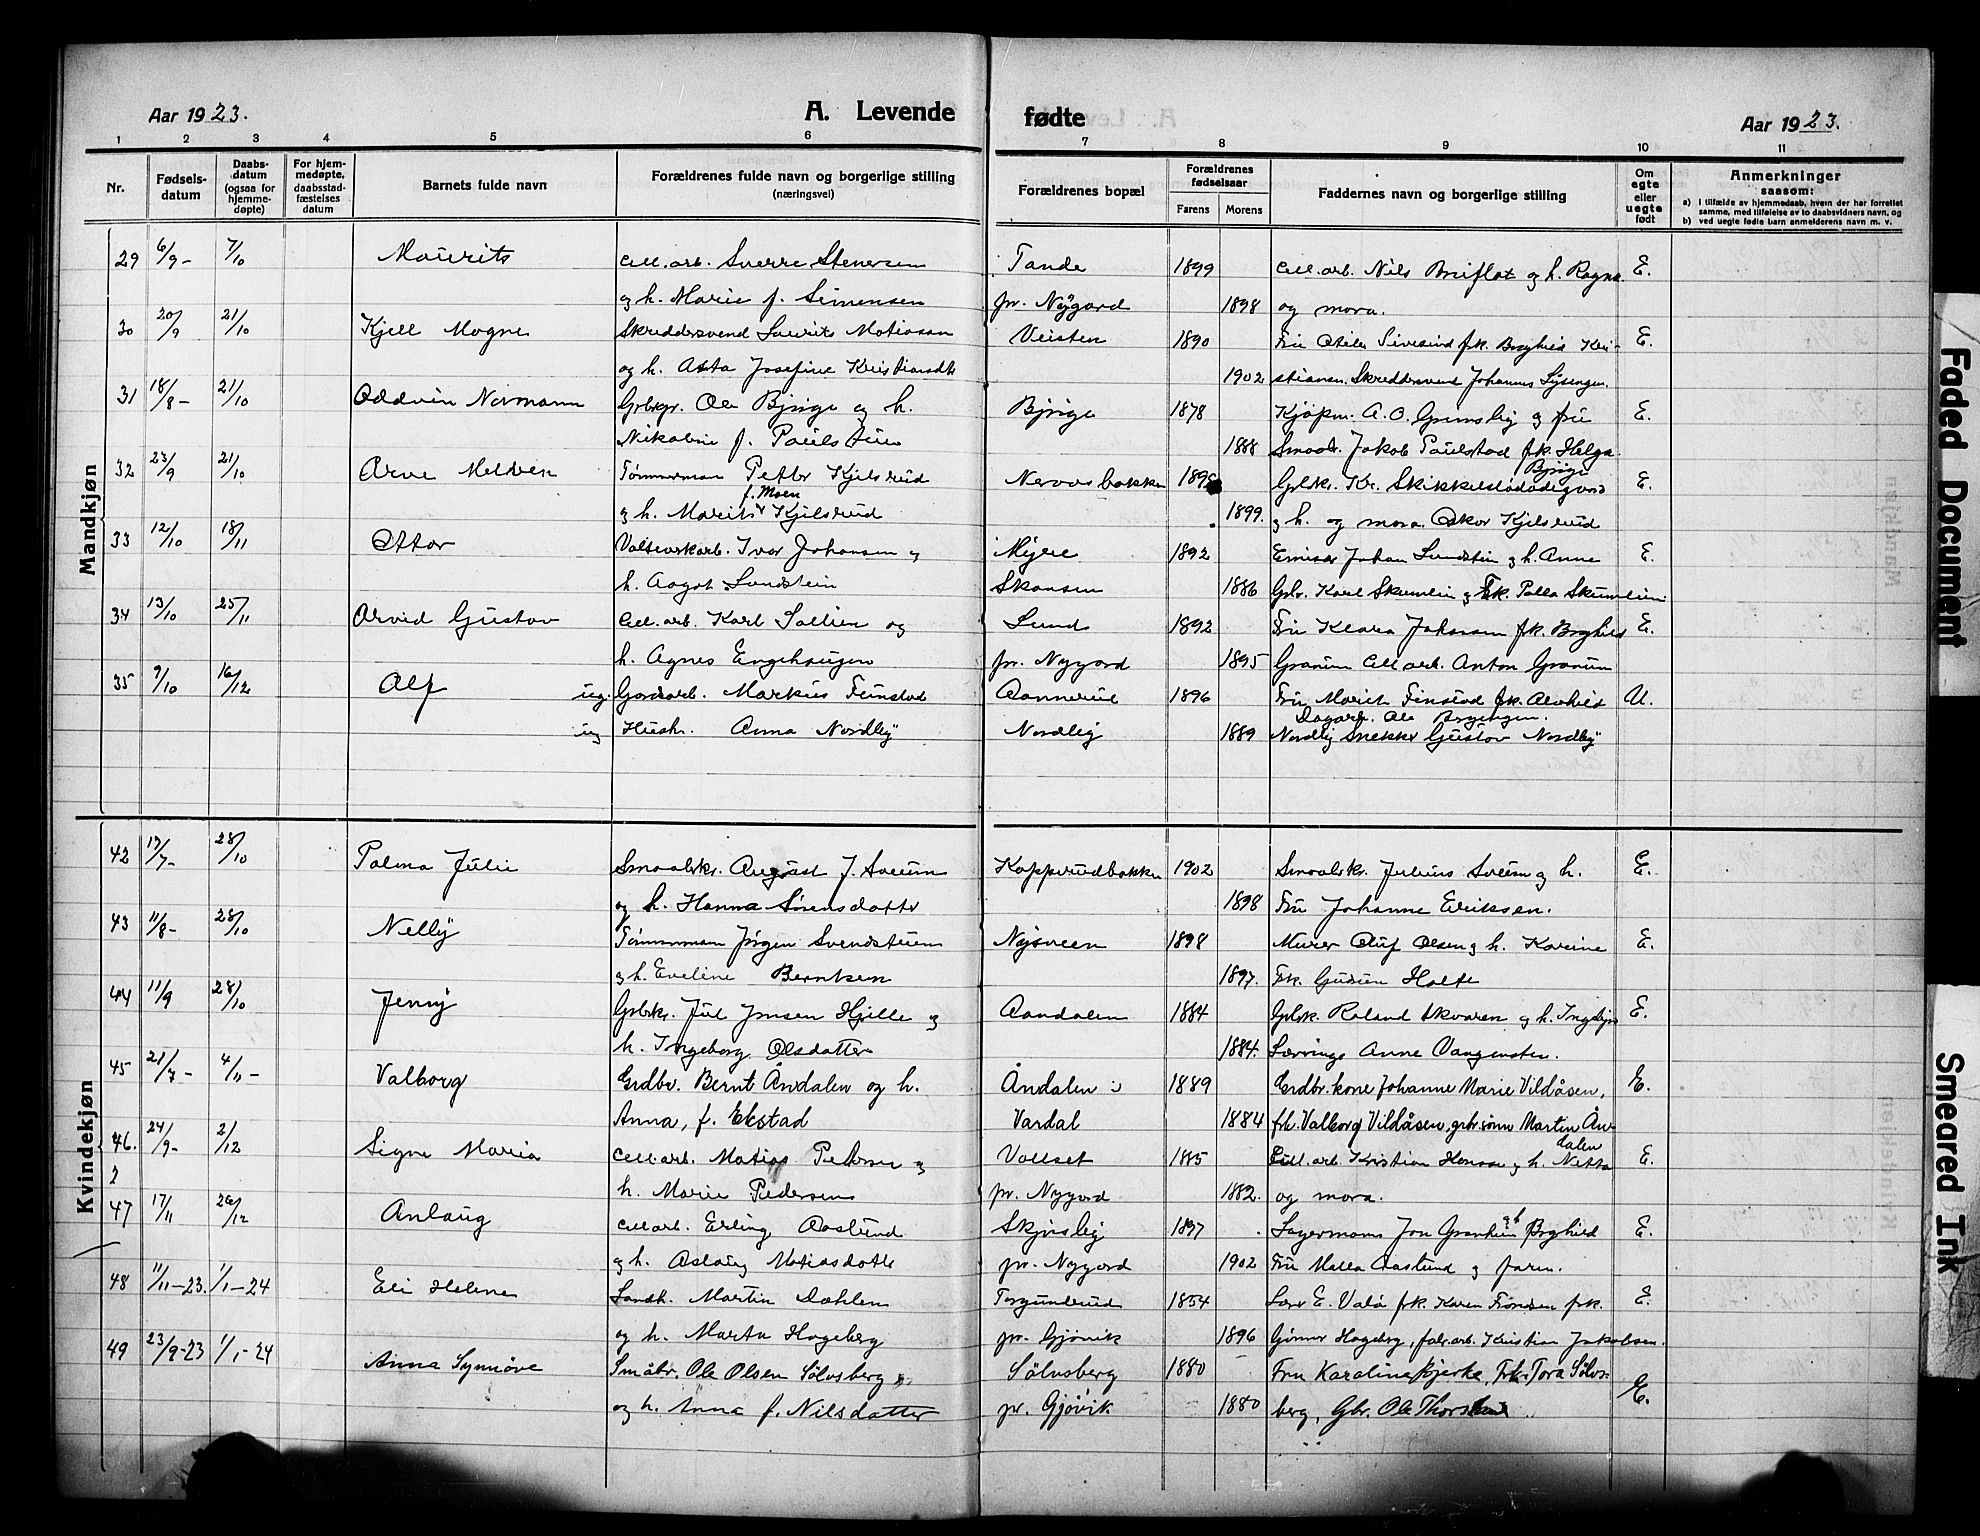 Aar 1923.
A. Levende fødte
Aar 1923.
1 2 3 4 5 6 7 8 9 10 11
Nr.
Fødsels-datum
Daabs-datum (ogsaa for hjemme-døpte)
For hjem-medøpte, daabsstad-fæstelses datum
Barnets fulde navn
Forældrenes fulde navn og borgerlige stilling (næringsvei)
Forældrenes bopæl
Forældrenes fødselsaar
Farens Morens
Faddernes navn og borgerlige stilling
Om egte eller uegte født
Anmerkninger saasom:
a) I tilfælde av hjemmedaab, hvem der har forrettet samme, med tilføielse av to daabsvidners navn, og
b) ved uegte fødte barn anmelderens navn m. v.
Mandkjøn
29 6/9- 7/10 Maurits Cell.arb. Sverre Stenersen Tande 1899 Cell.arb. Nils Bruflat og h. Ragna E.
og h. Marie f. Simensen pr. Nygard 1898 og mora.
30 20/9 21/10 Kjell Mogne Skreddersvend Laurits Matiassen Veisten 1890 Fru Sivesind frk. Borghild Kri- E.
og h. Asta Josefine Kristiansdtr 1902 stiansen. Skreddersvend Johannes
31 18/8- 21/10 Oddvin Normann Grbrgr. Ole Bjørge og h. Bjørge 1878 Kjøpm. A. O. Grimsby og fru E.
Nikoline f. Paulstuen 1888 Smaabr. Jakob Paulstad frk. Helga Bjørge
32 23/9 21/10 Arve Tømmerman Petter Kjelsrud 189 Gbks. Kr. E.
og h. Marit f. Moen Kjelsrud 1899. og h. og mora. Oskar Kjelsrud
33 12/10 18/11 Ottar Valseverkarb. Ivar Johansen og Myre 1892 Emissær Johan Lundstein og h. Anne E.
h. Aagot Lundstein Skansen 1886 Gbr. Karl Skumlien og Frk. Palla Skumlien
34 13/10 25/11 Arvid Gustav Cell.arb. Karl Sollien og Lund 1892 Fru Klara Johansen frk. Borghild E.
h. Agnes Engehaugen pr. Nygord 1895 Granum Cell arb. Anton Granum
35 9/10 16/12 Alf ug. Gardarb. Markus Finstad Aannerud 1896 Fru Marit Finstad frk. Alvhild U.
ug Hush. Anna Nordby Nordby 1889 Nordby Dagarb. Ole Snekker Gustav Nordby
Kvindekjøn
42 17/7- 28/10 Palma Julie Smaabrks. August J. Sveum Kapperudbakken 1902 Smaabrks. Julius Sveum og h. E.
og h. Hanna Sørensdatter 1898 Fru Johanne Eriksen.
43 11/8- 28/10 Nelly Tømmerman Jørgen Svendstuen Nysveen 1898 Murer Oluf Olsen og h. Karine E.
og h. Eveline Berntsen 1897. Frk. Gudrun Holte
44 11/9 28/10 Jenny Grbrks. Jul Jensen Hjelle og Aandalen 1884 Gbrk. Roland og h. E.
h. Ingeborg Olsdatter 1884. Anne Vangensten.
45 21/7- 4/11- Valborg Grdbr. Bernt Åndalen og h. Åndalen i 1889 Grdbr.kone Johanne Marie Vildåsen, E.
Anna, f. Ekstad Vardal 1884 frk. Valborg Vildåsen, gbr.sønn Martin Ån-dalen
46. 24/9- 2/12 Signe Maria Cell.arb. Matias Petersen og Vollset 1885 Cell.arb Kristian Hansen og h. Netta E.
2 h. Marie Pedersen pr. Nygord 1882. og mora.
47 17/11 26/12 Anlaug Cell.arb. Erling Aaslund Skjersby 1897 Lagermann Jon Granheim og h Borghild E.
og h. Aslaug Matiasdatter pr. Nygord 1902 Fru Malla Aaslund og faren.
48 11/11-23. 1/1-24 Eli Helene Landh. Martin Dæhlen Torgunrud 1854 Lærer E. Valø frk. Karen frk. E.
og h. Marta Hageberg pr. Gjøvik 1896 Gunnar Hageberg, fabr.arb. Kristian Jakobsen.
49 23/9-23 1/1-24 Anna Synnøve Småbr. Ole Olsen Sölvsberg Sölvsberg 1880 Fru Karoline Bjerke, Frk. Tora Sölvs- E.
og h. Anna f. Nilsdatter pr. Gjövik 1880 berg, Gbr. Ole
Faded Document
Smeared Ink